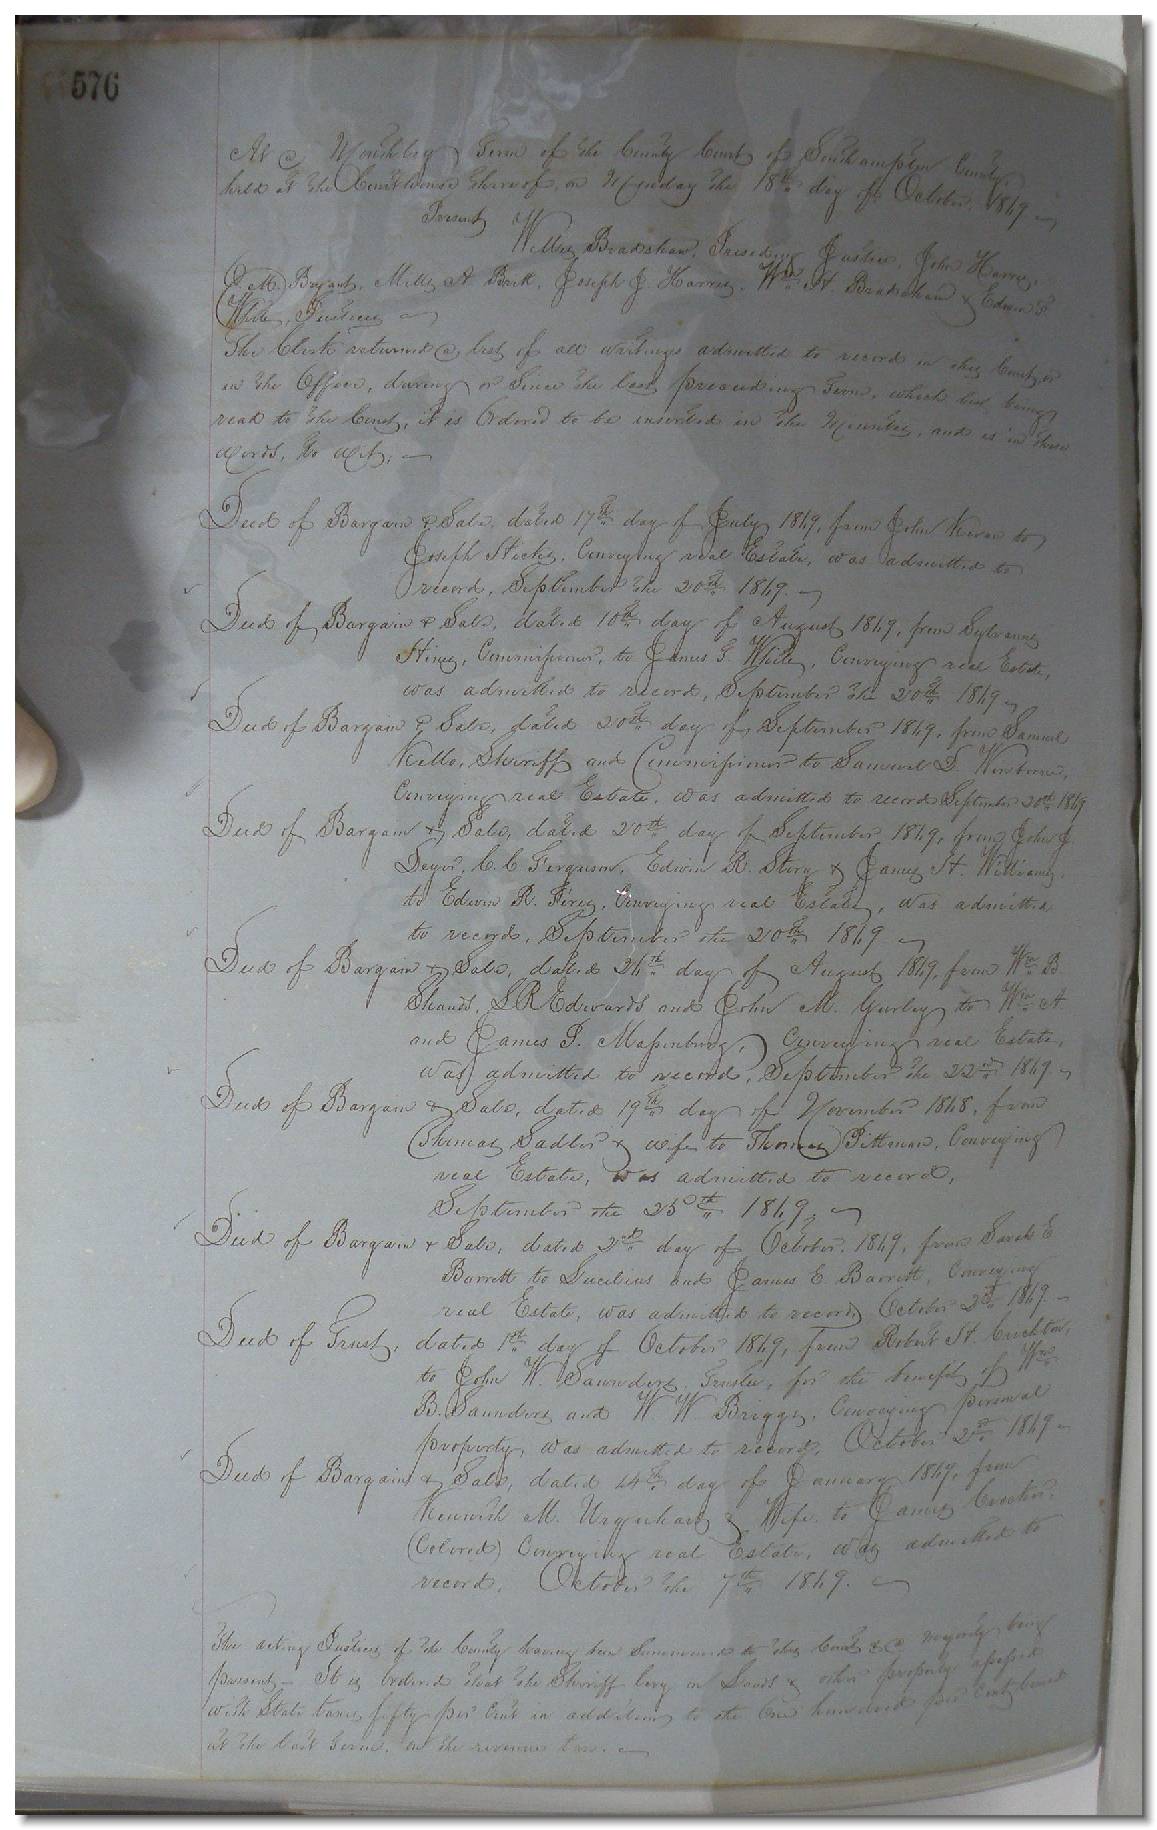 576
At a Monthly Term of the County Court of Southampton County
held at the Courthouse thereof, on Monday the 18th day of October 1869
Present
Willis Bradshaw, Presiding Justice, John Harris,
J. M. Bryant, Mills A. Joseph J. Harris, Wm H. Bradshaw & Edwin
White, Justices
The Clerk returned a list of all writings admitted to record in this County, or
in the Office, during or since the last preceeding Term, which list being
read to the Court, it is Ordered to be inserted in the Minutes, and is in these
words, to wit;
Deed of Bargain & Sale, dated 17th day of July 1869, from John to
Joseph Conveying real Estate, was admitted to
record, September the 20th 1869.
Deed of Bargain & Sale, dated 10th day of August 1869, from Sylvanus
Hines, Commissioner, to James G. White, Conveying real Estate,
was admitted to record, September the 20th 1869
Deed of Bargain & Sale, dated 20th day of September 1869, from Samuel
Kello, Sheriff and Commissioner to Samuel D. Winborne,
Conveying real Estate, was admitted to record September 20th 1869
Deed of Bargain & Sale, dated 20th day of September 1869, from John J.
Deyer, C. C. Ferguson, Edwin R. & James H. Williams,
to Edwin R. Conveying real Estate, was admitted
to record, September the 20th 1869
Deed of Bargain & Sale, dated 26th day of August 1869, from Wm B.
Shands, S R Edwards and John M. Gurley to Wm A
and James P. Massenburg, Conveying real Estate,
was admitted to record, September the 22nd 1869
Deed of Bargain & Sale, dated 19th day of November 1868, from
Thomas Sadler & wife to Thomas Pittman, Conveying
real Estate, was admitted to record,
September the 25th 1869,
Deed of Bargain & Sale, dated 2nd day of October, 1869, from Sarah E
Barrett to Lucilius and James E. Barrett, Conveying
real Estate, was admitted to record, October 2nd 1869
Deed of Trust, dated 1st day of October 1869, from Robert H. Crichton,
to John W. Saunders Trustee, for the benefit of Wm
B. Saunders and W W Briggs, Conveying personal
property, was admitted to record, October 2nd 1869
Deed of Bargain & Sale, dated 14th day of January 1869, from
M. Urquhart & Wife to James
(Colored) Conveying real Estate, was admitted to
record, October the 7th 1869.
The acting Justices of the County having been Summoned to this Court & a majority being
present — It is ordered that the Sheriff levy on Lands & other property assessed
with State taxes fifty per Cent in addition to the One hundred per Cent levied
at the last Term, on the revenue tax.